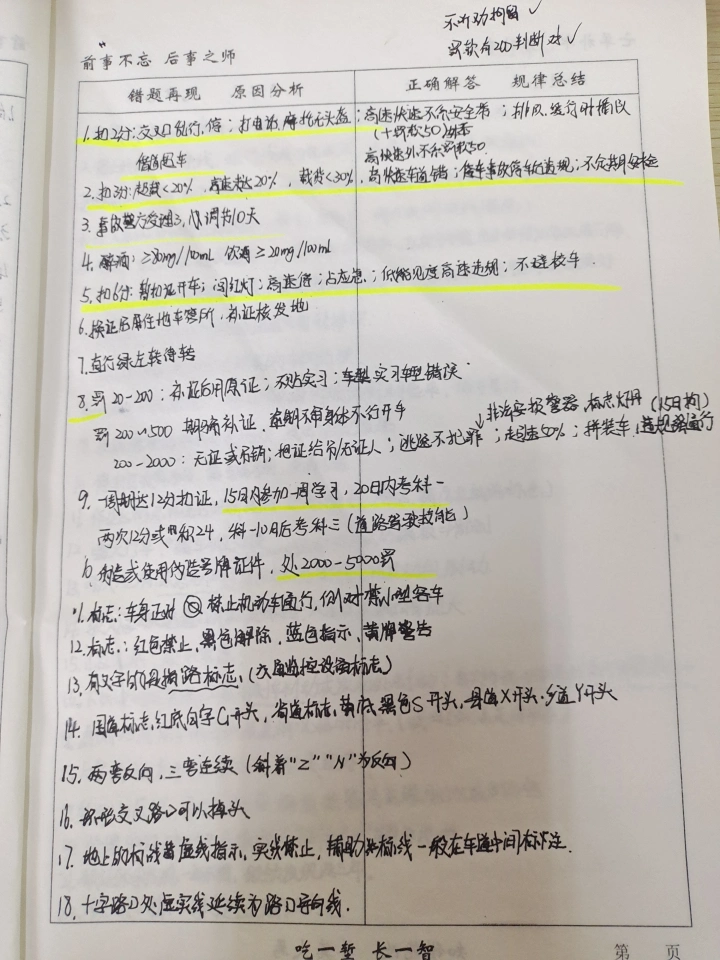 不听劝拘留 ✓
罚款有200判断对 ✓
前事不忘 后事之师
错题再现 原因分析 正确解答 规律总结
1.扣2分:交叉口乱行、停;打电话,摩托无头盔;高速快速不系安全带;排队、缓行时插队
(+罚款50)
借道超车 高快速外不系罚款50
2.扣3分:超载<20%,超速<20%,载货<30%,高快速车道错;停车事故停车违规;不定期安检
3. 10天
4.醉酒:≥80mg/100ml 饮酒≥20mg/100ml
5.扣6分:暂扣证开车;闯红灯;高速停;占应急;低能见度高速违规;不避校车
6.换证后居住地车管所,补证核发地
7.直行绿左转待转
8.罚20-200:补证后用原证;不贴实习;实习车型错误
罚200~500 期满补证,逾期不审身体不行开车
非法安装警报器、标志灯具(15日拘)
200-2000:无证或吊销;把证给别人/无证人;逃逸不犯罪;超速50%;拼装车,
9.一周期达12分扣证,15日内参加一周学习,20日内考科一
两次12分或累积24,科一10日后考科三(道路驾驶技能)
10.伪造或使用伪造号牌证件,处2000-5000罚
11.标志:车身正对 禁止机动车通行,侧对禁小型客车
12.标志:红色禁止,黑色解除,蓝色指示,黄牌警告
13.有文字的是指路标志,(交通监控设备标志)
14.国道标志,红底白字G开头,省道标志,黄底黑色S开头,县道X开头,乡道Y开头
15.两弯反向,三弯连续(斜着"Z""N"为反向)
16.环形交叉路口可以掉头
17.地上的标线黄虚线指示,实线禁止,辅助标线一般在车道中间有标注.
18.十字路口处虚实线延续为路口导向线.
吃一堑 长一智
第 页